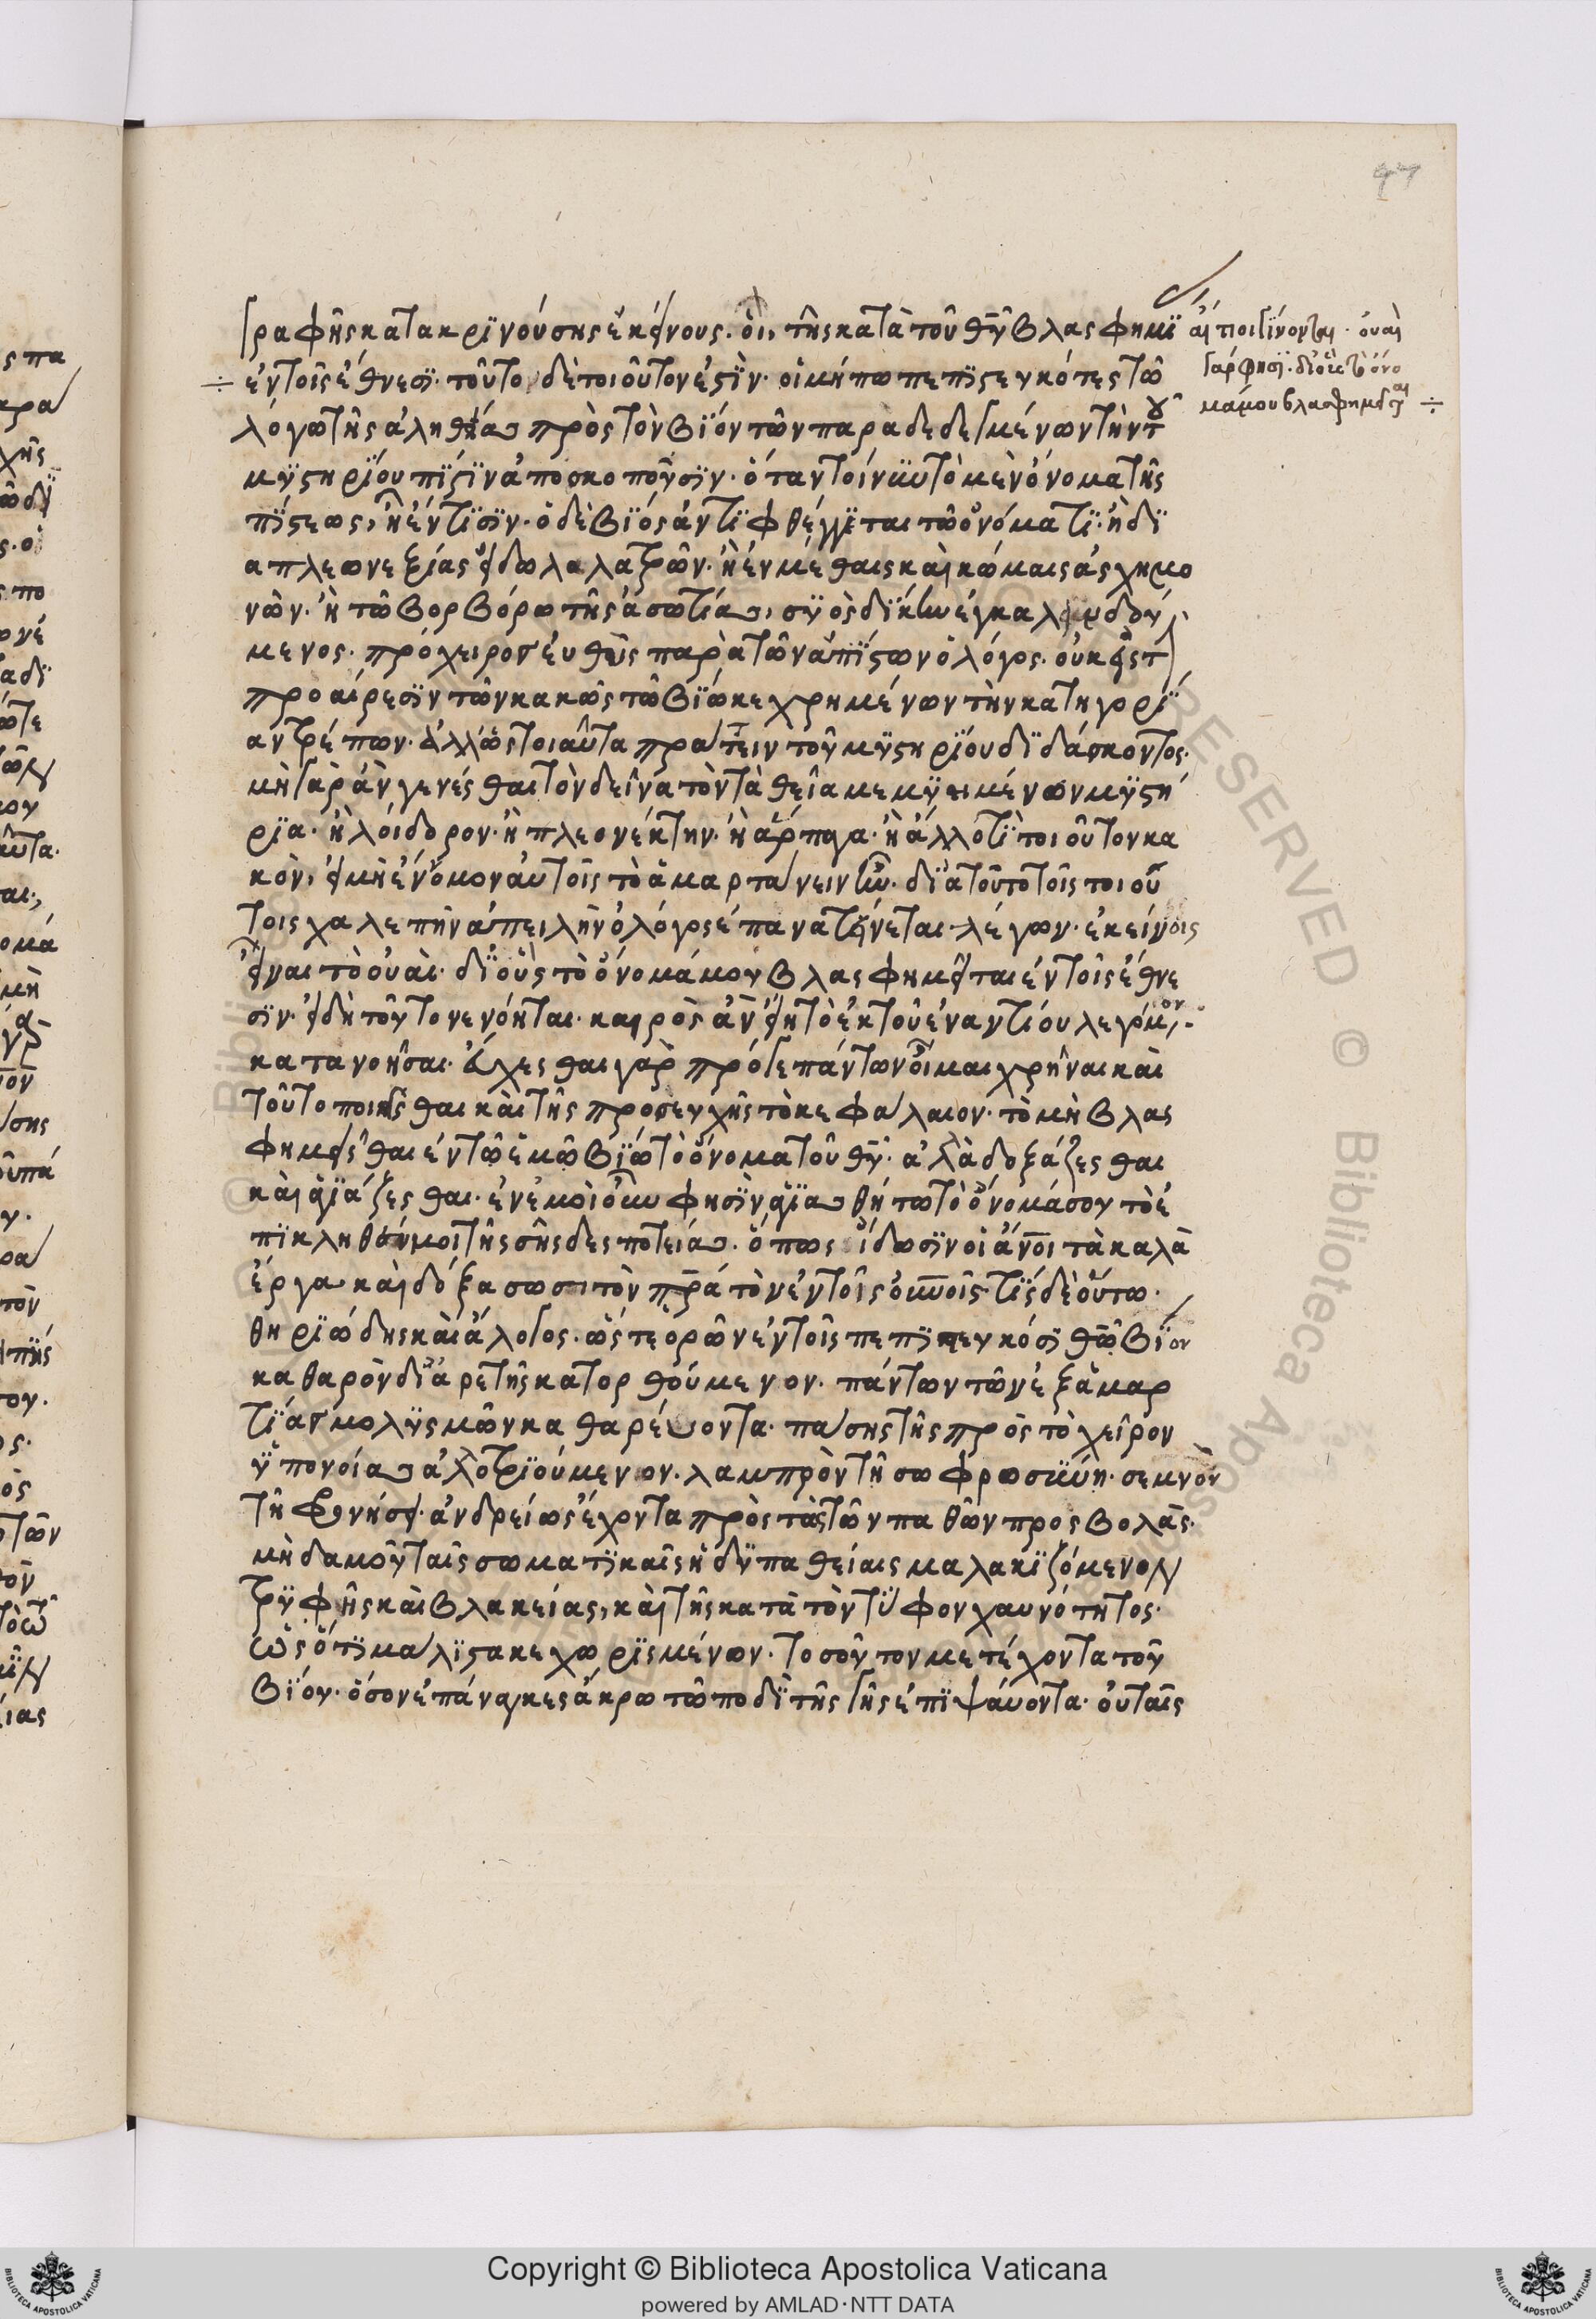 47
γραφῆς κατακρϊνούσης ἐκείνους. ὁι, τῆς κατὰ τοῦ θῡ βλασφημϊ
ἐν τοῖς ἔθνεσϊ. τοῦτο δὲ τοιοῦτον ἐστϊν. οἱ μήπω πεπϊστευκότες τῶ
λόγω τῆς ἀληθείας πρὸς τὸν βϊόν τῶν παραδεδεγμένων τὴν τοῦ
μϋστηρϊου πϊστϊν ἀποσκοποῦσϊν. ὅταν τοίνυν τὸ μὲν ὄνομα τῆς
πϊστεως, ἦ ἐν τϊσϊν. ὁ δὲ βϊός ἀντϊφθέγγϊται τῶ ὀνόματϊ. ἢ δϊ
α πλεωνεξίας εἰδωλαλατρῶν. ἢ ἐν μέθαις καὶ κώμαις ἀσχημο
νῶν. ἢ τῶ βορβόρω τῆς ἀσωτίας, σϋὸς δϊκην ἐγκαλινδού
μενος. πρόχειρος εὐθὺς παρὰ τῶν ἀπϊστων ὁ λόγος. οὐκ εἰς τ
προαίρεσϊν τῶν κακῶς τῶ βϊώ κεχρημένων τὴν κατηγορϊ
αν τρέπων. ἀλλ' ὡς τοιαῦτα πράττειν τοῦ μϋστηρϊου δϊδάσκοντος.
μὴ γὰρ ἀν γενέσθαι τὸν δεῖνα τὸν τὰ θεῖα μεμϋειμένων μϋστή
ρϊα. ἢ λοίδορον. ἢ πλεονέκτην. ἢ ἅρπαγα. ἢ ἄλλο τϊ τοιοῦτον κα
κὸν, εἰ μὴ ἔννομον αὐτοῖς τὸ ἁμαρτάνειν ἦν. δϊα τοῦτο τοῖς τοιού
τοις χαλεπὴν ἀπειλὴν ὁ λόγος ἐπανατείνεται. λέγων. ἐκείνοις
εἶναι τὸ οὐαὶ. δϊ οὓς τὸ ὄνομά μου βλασφημεῖται ἐν τοῖς ἔθνε
σϊν. εἰ δὴ τοῦτο νενόηται. καιρὸς ἀν εἴη τὸ ἐκ τοῦ ἐναντίου λεγόμενον
κατανοῆσαι. ἄχεσθαι γὰρ πρό γε πάντων οἶμαι χρῆναι καὶ
τοῦτο ποιεῖσθαι καὶ τῆς προσευχῆς τὸ κεφάλαιον. τὸ μὴ βλας
φημεῖσθαι ἐν τῶ ἐμῶ βϊώ τὸ ὄνομα τοῦ θῡ. ἀλλὰ δοξάζεσθαι
καὶ ἁγϊάζεσθαι. ἐν ἐμοὶ οὖν φησϊν ἁγϊασθήτω τὸ ὄνομά σου τὸ ἐ
πϊκληθέν μοι τῆς σῆς δεσποτείας. ὅπως ἴδωσϊν οἱ ἄν̅οι τὰ καλὰ
ἔργα καὶ δόξασωσι τὸν πρ̅α τὸν ἐν τοῖς οὐν̅οῖς. τϊς δὲ οὕτω
θηρϊώδης καὶ ἄλογος. ὥς τε ὁρῶν ἐν τοῖς πεπϊστευκόσϊ θῶ βϊον
καθαρὸν δϊ ἀρετῆς κατορθούμενον. πάντων τῶν ἐξ ἁμαρ
τϊας μολϋσμῶν καθαρεύοντα. πάσης τῆς πρὸς τὸ χεῖρον
ϋπονοίας ἀλλοτρϊούμενον. λαμπρὸν τῆ σωφρωσύνη. σεμνὸν
τῆ φρονήσει. ἀνδρείως ἔχοντα πρὸς τὰς τῶν παθῶν προσβολὰς.
μὴδαμοῦ ταῖς σωματϊκαῖς ἡδϋπαθείαις μαλακϊζόμενον
τρϋφῆς καὶ βλακείας, καὶ τῆς κατὰ τὸν τῦφον χαυνότητος.
ὡς ὅτϊ μάλϊστα κεχωρϊσμένων. τοσοῦτον μετέχοντα τοῦ
βϊου. ὅσον ἐπάναγκες ἄκρω τῶ ποδὶ τῆς γῆς ἐπϊψάυοντα. οὐ ταῖς
αν ποιγϊνονται. ὀυαὶ
γάρ φησϊ. δϊ οὓς τὸ ὄνο
μά μου βλασφημεῖται
Copyright © Biblioteca Apostolica Vaticana
powered by AMLAD·NTT DATA